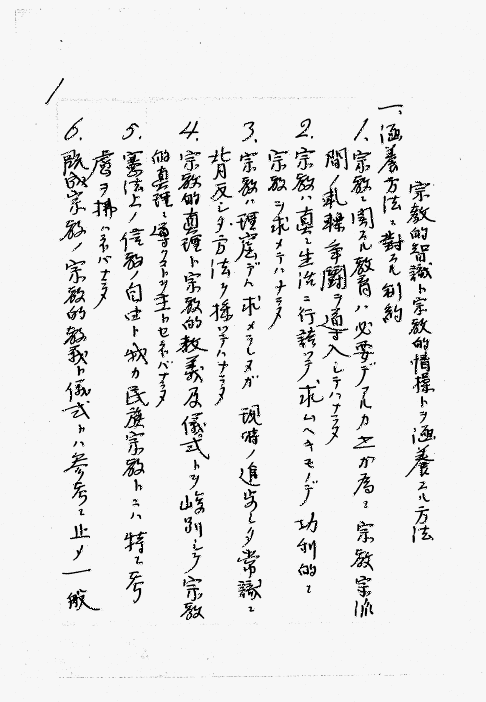 宗教的智識ト宗教的情操トヲ涵養スル方法
一、涵養方法ニ對スル制約
1. 宗教ニ関スル教育ハ必要デアルカ之カ為ニ宗教宗派
間ノ軋轢争闘ヲ導入シテハナラヌ
2. 宗教ハ真ニ生活ニ行該シテ求ムヘキモノデ功利的ニ
宗教ヲ求メテハナラヌ
3. 宗教ハ理窟デハ求メラレヌガ現時ノ進歩シタ常識ニ
背反シタ方法ヲ採ツテハナラヌ
4. 宗教的真理ト宗教的教義及儀式トヲ峻別シテ宗教
的真理ニ導クヲ主トセネバナラヌ
5. 憲法上ノ信教ノ自由ト我カ民族宗教トニハ特ニ考
慮ヲ拂ハネバナラヌ
6. 既成宗教ノ宗教的教義ト儀式トハ参考ニ止メ一般